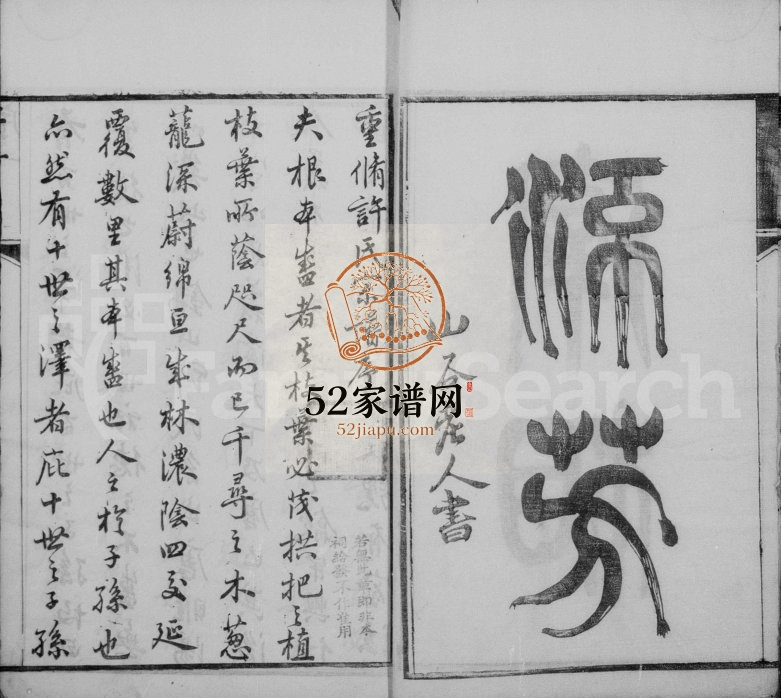 流芳
山 人書
重脩許氏宗譜序
夫根本盛者其枝葉必茂拱把之植
枝葉所蔭咫尺而已千尋之木蔥
蘢深蔚綿亘成林濃陰四交延
覆數里其本盛也人之於子孫也
亦然有十世之澤者庇十世之子孫
若無此章即非本
祠給發不作准用
52家谱网
52jiapu.com
FamilySearch